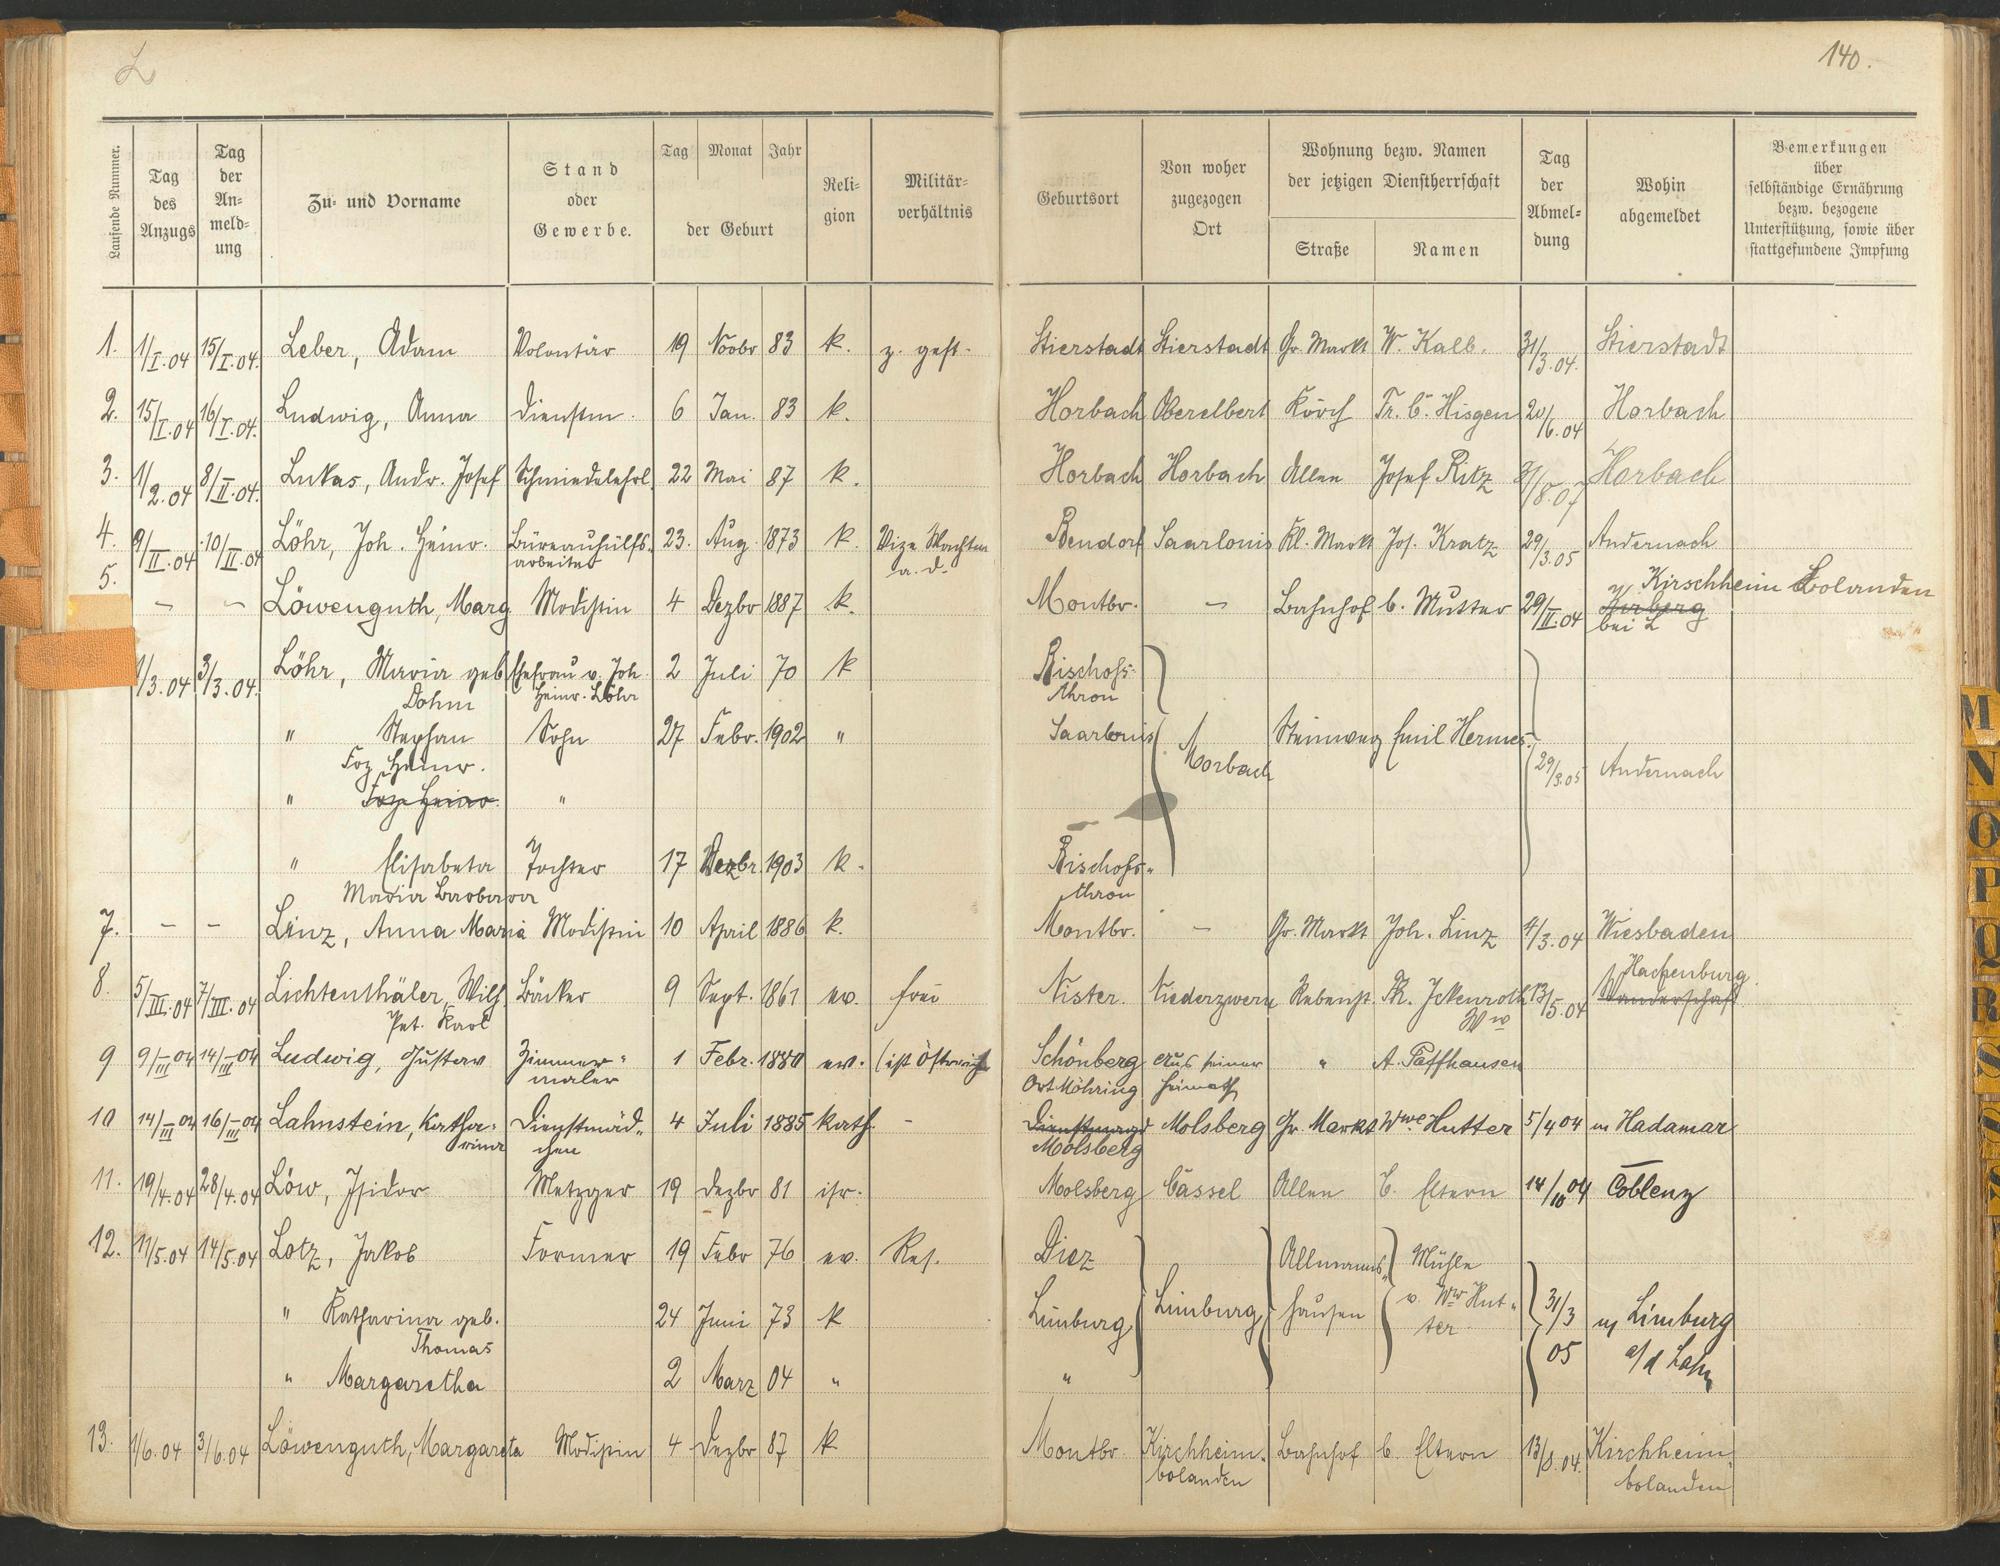 L
140.
Laufende Nummer.
Tag des Anzugs
Tag der An= meld= ung
Zu= und Vorname
Stand oder Gewerbe.
Tag Monat Jahr
der Geburt
Reli= gion
Militär= verhältnis
Geburtsort
Von woher zugezogen Ort
Wohnung bezw. Namen der jetzigen Dienstherrschaft
Straße Namen
Tag der Abmel= dung
Wohin abgemeldet
Bemerkungen über selbständige Ernährung bezw. bezogene Unterstützung, sowie über stattgefundene Impfung
1. 1/I.04 15/I.04. Leber, Adam Volontär 19 Novbr 83 k. z. gest. Stierstadt Stierstadt Gr. Markt W. Kalb. 31/3.04. Stierstadt
2. 15/I.04 16/I.04. Ludwig, Anna Dienstm. 6 Jan. 83 k. Horbach Oberelbert Hisgen 20/6.04 Horbach
3. 1/2.04 8/II.04. Lukas, Andr. Josef Schmiedelehrl. 22 Mai 87 k. Horbach Horbach Allee Josef Ritz Horbach
4. 9/II.04 10/II.04 Löhr, Joh. Heinr. Büreauhülfs- 23. Aug. 1873 k. Vize Wachtm Bendorf Saarlouis Kl. Markt Jos. Kratz 29/3.05 Andernach
arbeiter a. D.
5. – – Löwenguth, Marg Modistin 4 Dezbr 1887 k. Montbr. – Bahnhof b. Mutter 29/II.04 Kirschheim Bolanden
bei L
1/3.04 3/3.04. Löhr, Maria geb Ehefrau v. Joh. 2 Juli 70 k Bischofs-
Dohm Heinr. Löhr thron
" Stephan Sohn 27 Febr. 1902 " Saarlouis Morbach Steinweg Emil Hermes. 29/3.05 Andernach
Foz Heinr.
" Foz Heinr. "
" Elisabeta Tochter 17 Dezbr. 1903 k. Bischofs-
Maria Barbara thron
7. – – Linz, Anna Maria Modistin 10 April 1886 k. Montbr. – Gr. Markt Joh. Linz 4/3.04 Wiesbaden
8. 5/III.04 7/III.04 Lichtenthäler, Wilh. Bäcker 9 Sept. 1861 ev. frei Nister. Niederzwern Rebenst. Th. Ickenroth 13/5.04 Hachenburg
Pet. Karl Ww Wanderschaft
9 9/III 04 14/III 04 Ludwig, Gustav Zimmer- 1 Febr. 1880 ev. (ist Östreich Schönberg Aus seiner " A. Paffhausen
maler Ort Möhring Heimath
10 14/III 04 16/III 04 Lahnstein, Katha- Dienstmäd- 4 Juli 1885 kath. – Dienstmagd Molsberg Gr. Markt Wwe Hutter 5/4 04 n Hadamar
rina chen Molsberg
11. 19/4.04 28/4.04 Löw, Isidor Metzger 19 Dezbr 81 isr. Molsberg Cassel Allee b. Eltern 14/10 04 Coblenz
12. 11/5.04 14/5.04 Lotz, Jakob Former 19 Febr 76 ev. Res. Diez Limburg Allmanns- Mühle
" Katharina geb. 24 Juni 73 k Limburg hausen v. Ww Hut- 31/3 n Limburg
Thomas ter 05 a/d Lahn
" Margaretha 2 März 04 " "
13. 1/6.04 3/6.04 Löwenguth, Margareta Modistin 4 Dezbr 87 k Montbr. Kirchheim- Bahnhof b. Eltern 13/8.04. Kirchheim-
bolanden bolanden
M
N
O
P
Q
R
S